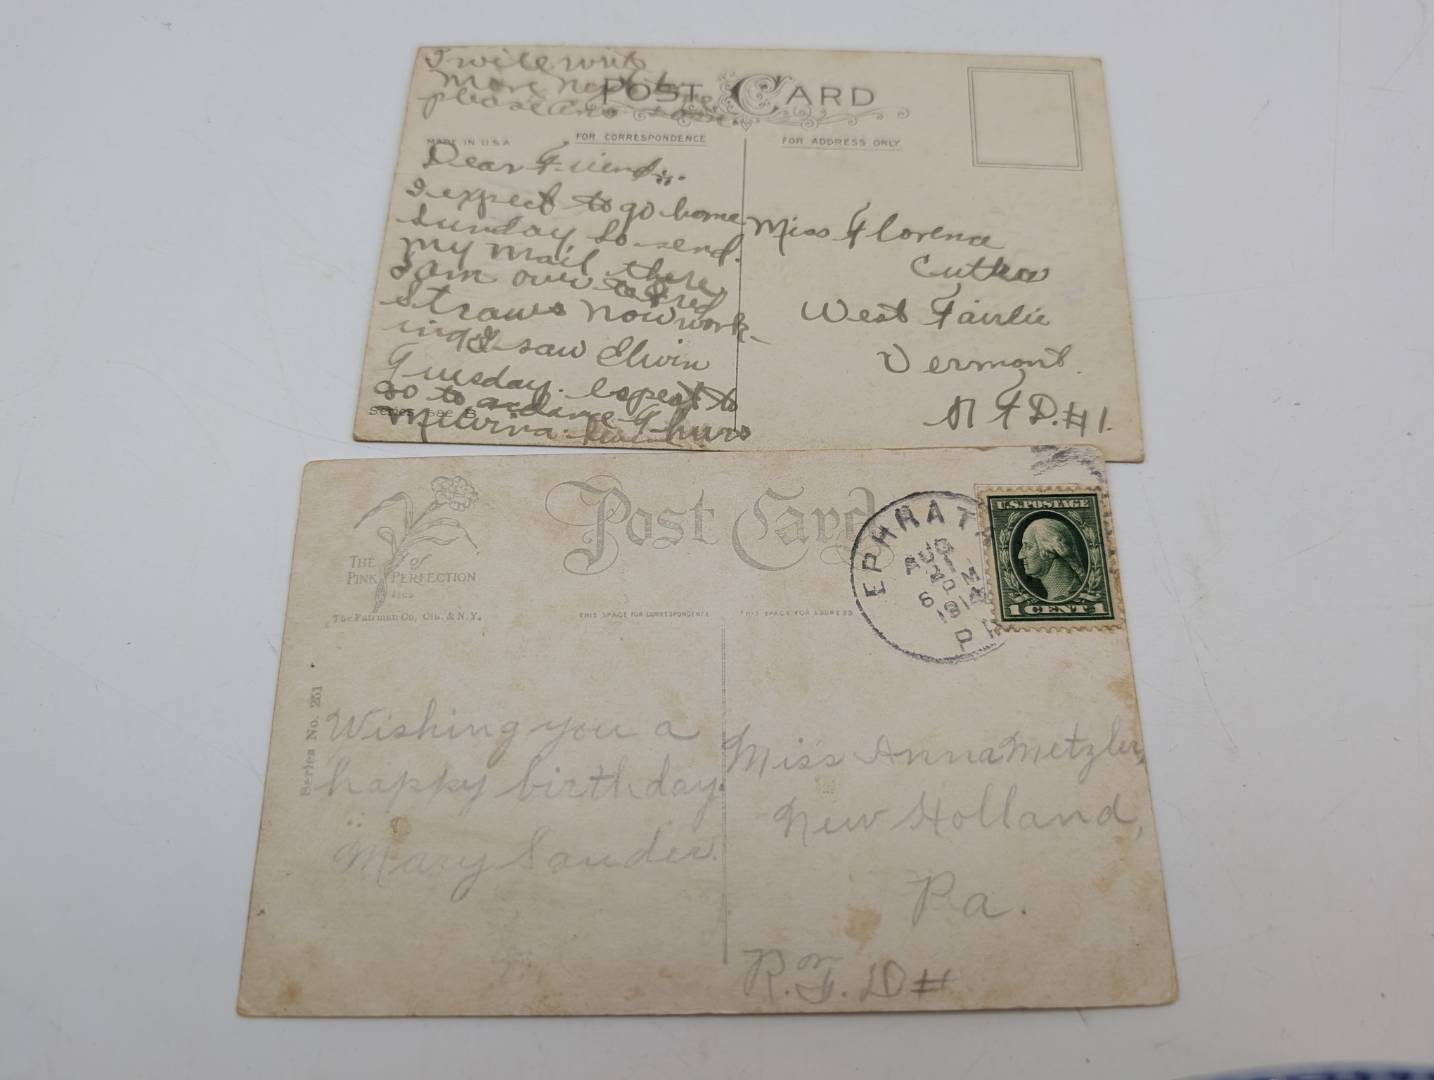 I will write
more next
please
POST CARD
MADE IN U.S.A
FOR CORRESPONDENCE
FOR ADDRESS ONLY
Dear Friend:.
I expect to go home
Sunday, so send
my mail there
I am over to Fred
Straws now work-
ing I saw Elwin
Tuesday. expect to
go to a dance Thurs
Melvina
Series 382 B
Miss Florence
Cutler
West Fairlie
Vermont.
R F D. #1.
THE PINK of PERFECTION
The Fairman Co, Cin. & N.Y.
Post Card
THIS SPACE FOR CORRESPONDENCE
THIS SPACE FOR ADDRESS
EPHRATA
AUG
6 P M
1914
U.S. POSTAGE
1 CENT 1
Series No. 251
Wishing you a
happy birthday.
Mary Sauder.
Miss Anna Metzler,
New Holland,
Pa.
R. F. D #